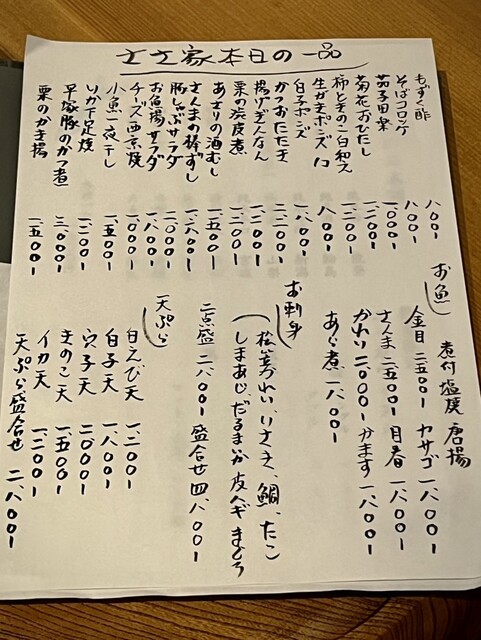 ささ家本日の一品
もずく酢 八〇〇-
そばコロッケ 八〇〇-
茄子田楽 一、〇〇〇-
菊花おひたし 一、二〇〇-
柿ときのこ白和え 一、二〇〇-
生がきポンズ 八〇〇-
白子ポンズ 一、八〇〇-
かつおたたき 二、二〇〇-
揚げぎんなん 一、二〇〇-
栗の渋皮煮 一、二〇〇-
あさりの酒むし 一、五〇〇-
さんまの棒ずし
豚しゃぶサラダ 二、〇〇〇-
お魚揚サラダ 一、八〇〇-
チーズ西京焼 一、〇〇〇-
小魚一夜干し 一、五〇〇-
いか下足焼 一、二〇〇-
平塚豚のかつ煮 三、〇〇〇-
栗のかき揚 一、五〇〇-
お魚 煮付 塩焼 唐揚
金目 二、五〇〇- カサゴ 一、八〇〇-
さんま 二、五〇〇- 目春 一、八〇〇-
かれい 二、〇〇〇- かます 一、八〇〇-
あら煮 一、八〇〇-
お刺身
松葉かれい、いさき、鯛、たこ
しまあじ、だるまいか 皮ハギ まぐろ
二点盛 二、八〇〇- 盛合せ 四、八〇〇-
天ぷら
白えび天 一、二〇〇-
白子天 一、八〇〇-
穴子天 二、〇〇〇-
きのこ天 一、五〇〇-
イカ天 一、二〇〇-
天ぷら盛合せ 二、八〇〇-